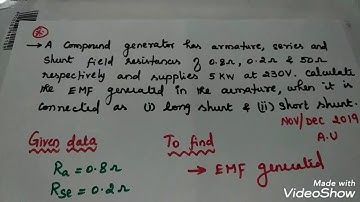 ⑧
→ A Compound generator has armature, series and
shunt field resistances of 0.8Ω, 0.2Ω & 50Ω
respectively and supplies 5 KW at 230V. Calculate
the EMF generated in the armature, when it is
connected as (i) long shunt & (ii) Short shunt.
NOV/DEC 2019
A.U
Given data
To find
Ra = 0.8Ω
→ EMF generated
RSe = 0.2Ω
Made with
VideoShow